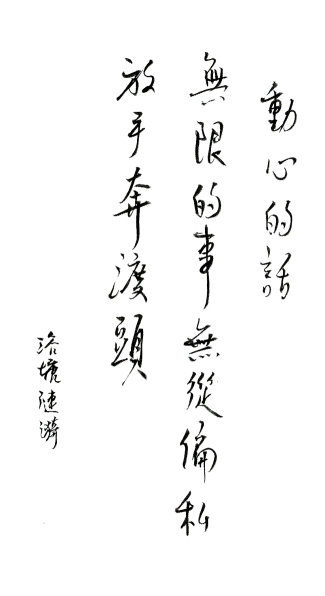 動心的話
無限的事無從偏私
放手奔渡頭
洛塘漣漪